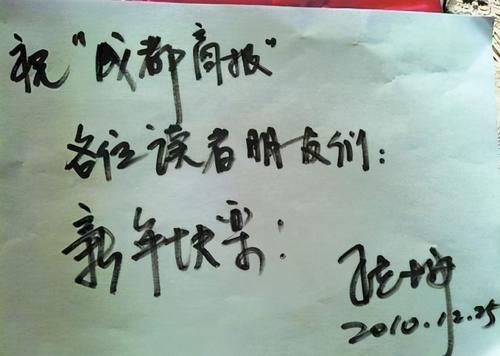 祝"成都商报"
各位读者朋友们：
新年快乐！
2010.12.25